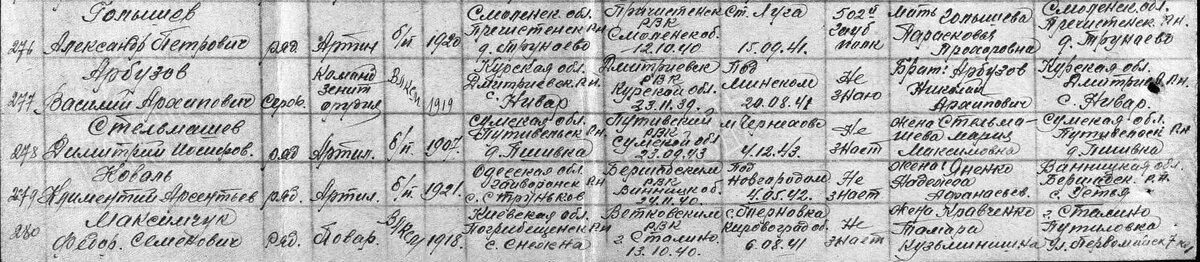 Голышев
276 Александр Петрович ряд. Артил б/п 1920 Смоленск. обл. Пречистенск. р-н д. Трунаево Пречистенск РВК Смоленск об. 12.10.40 Ст. Луга 15.09.41. 502й Гауб полк Мать Голышева Парасковья Прохоровна Смоленск. об. Пречистен. р.н. д. Трунаево
Арбузов
277 Василий Архипович Серж. Команд зенит орудия ВЛКСМ 1919 Курская обл. Дмитриевск. р.н с. Нивар Дмитриевск РВК Курской об. 23.11.39. Под Минском 20.08.41 Не знаю Брат: Арбузов Николай Архипович Курской об. Дмитриев. р.н. с. Нивар.
Стельмашев
278 Димитрий ряд Артил. б/п 1907. Сумская обл. Путивельск р.н. д. Пшивка Путивский РВК Сумской об 23.09.43 м. Черняхово 4.12.43. Не знает жена Стельмашева Мария Максимовка Сумской об. р.н. д. Пшивка
Коваль
279 Климентий Арсентьев ряд. Артил. б/п 1921. Одесская об. р.н с. Струньков Бершадским РВК Виницк об. 24.11.40. Под Новгородом 4.05.42 Не знает Жена: Оненко Надежда Афанасьев. Виницкая об. Бершадск. р.н.
Максимчук
280 Федор. Семенович ряд. Повар. 1918. Киевская об. Погребищенск р.н с. Снежна Ветковским РВК г. Сталино. 13.10.40. Кировоград об. 6.08.41 Не знает Жена Кравченко Тамара Кузьминишна г. Сталино Путиловка